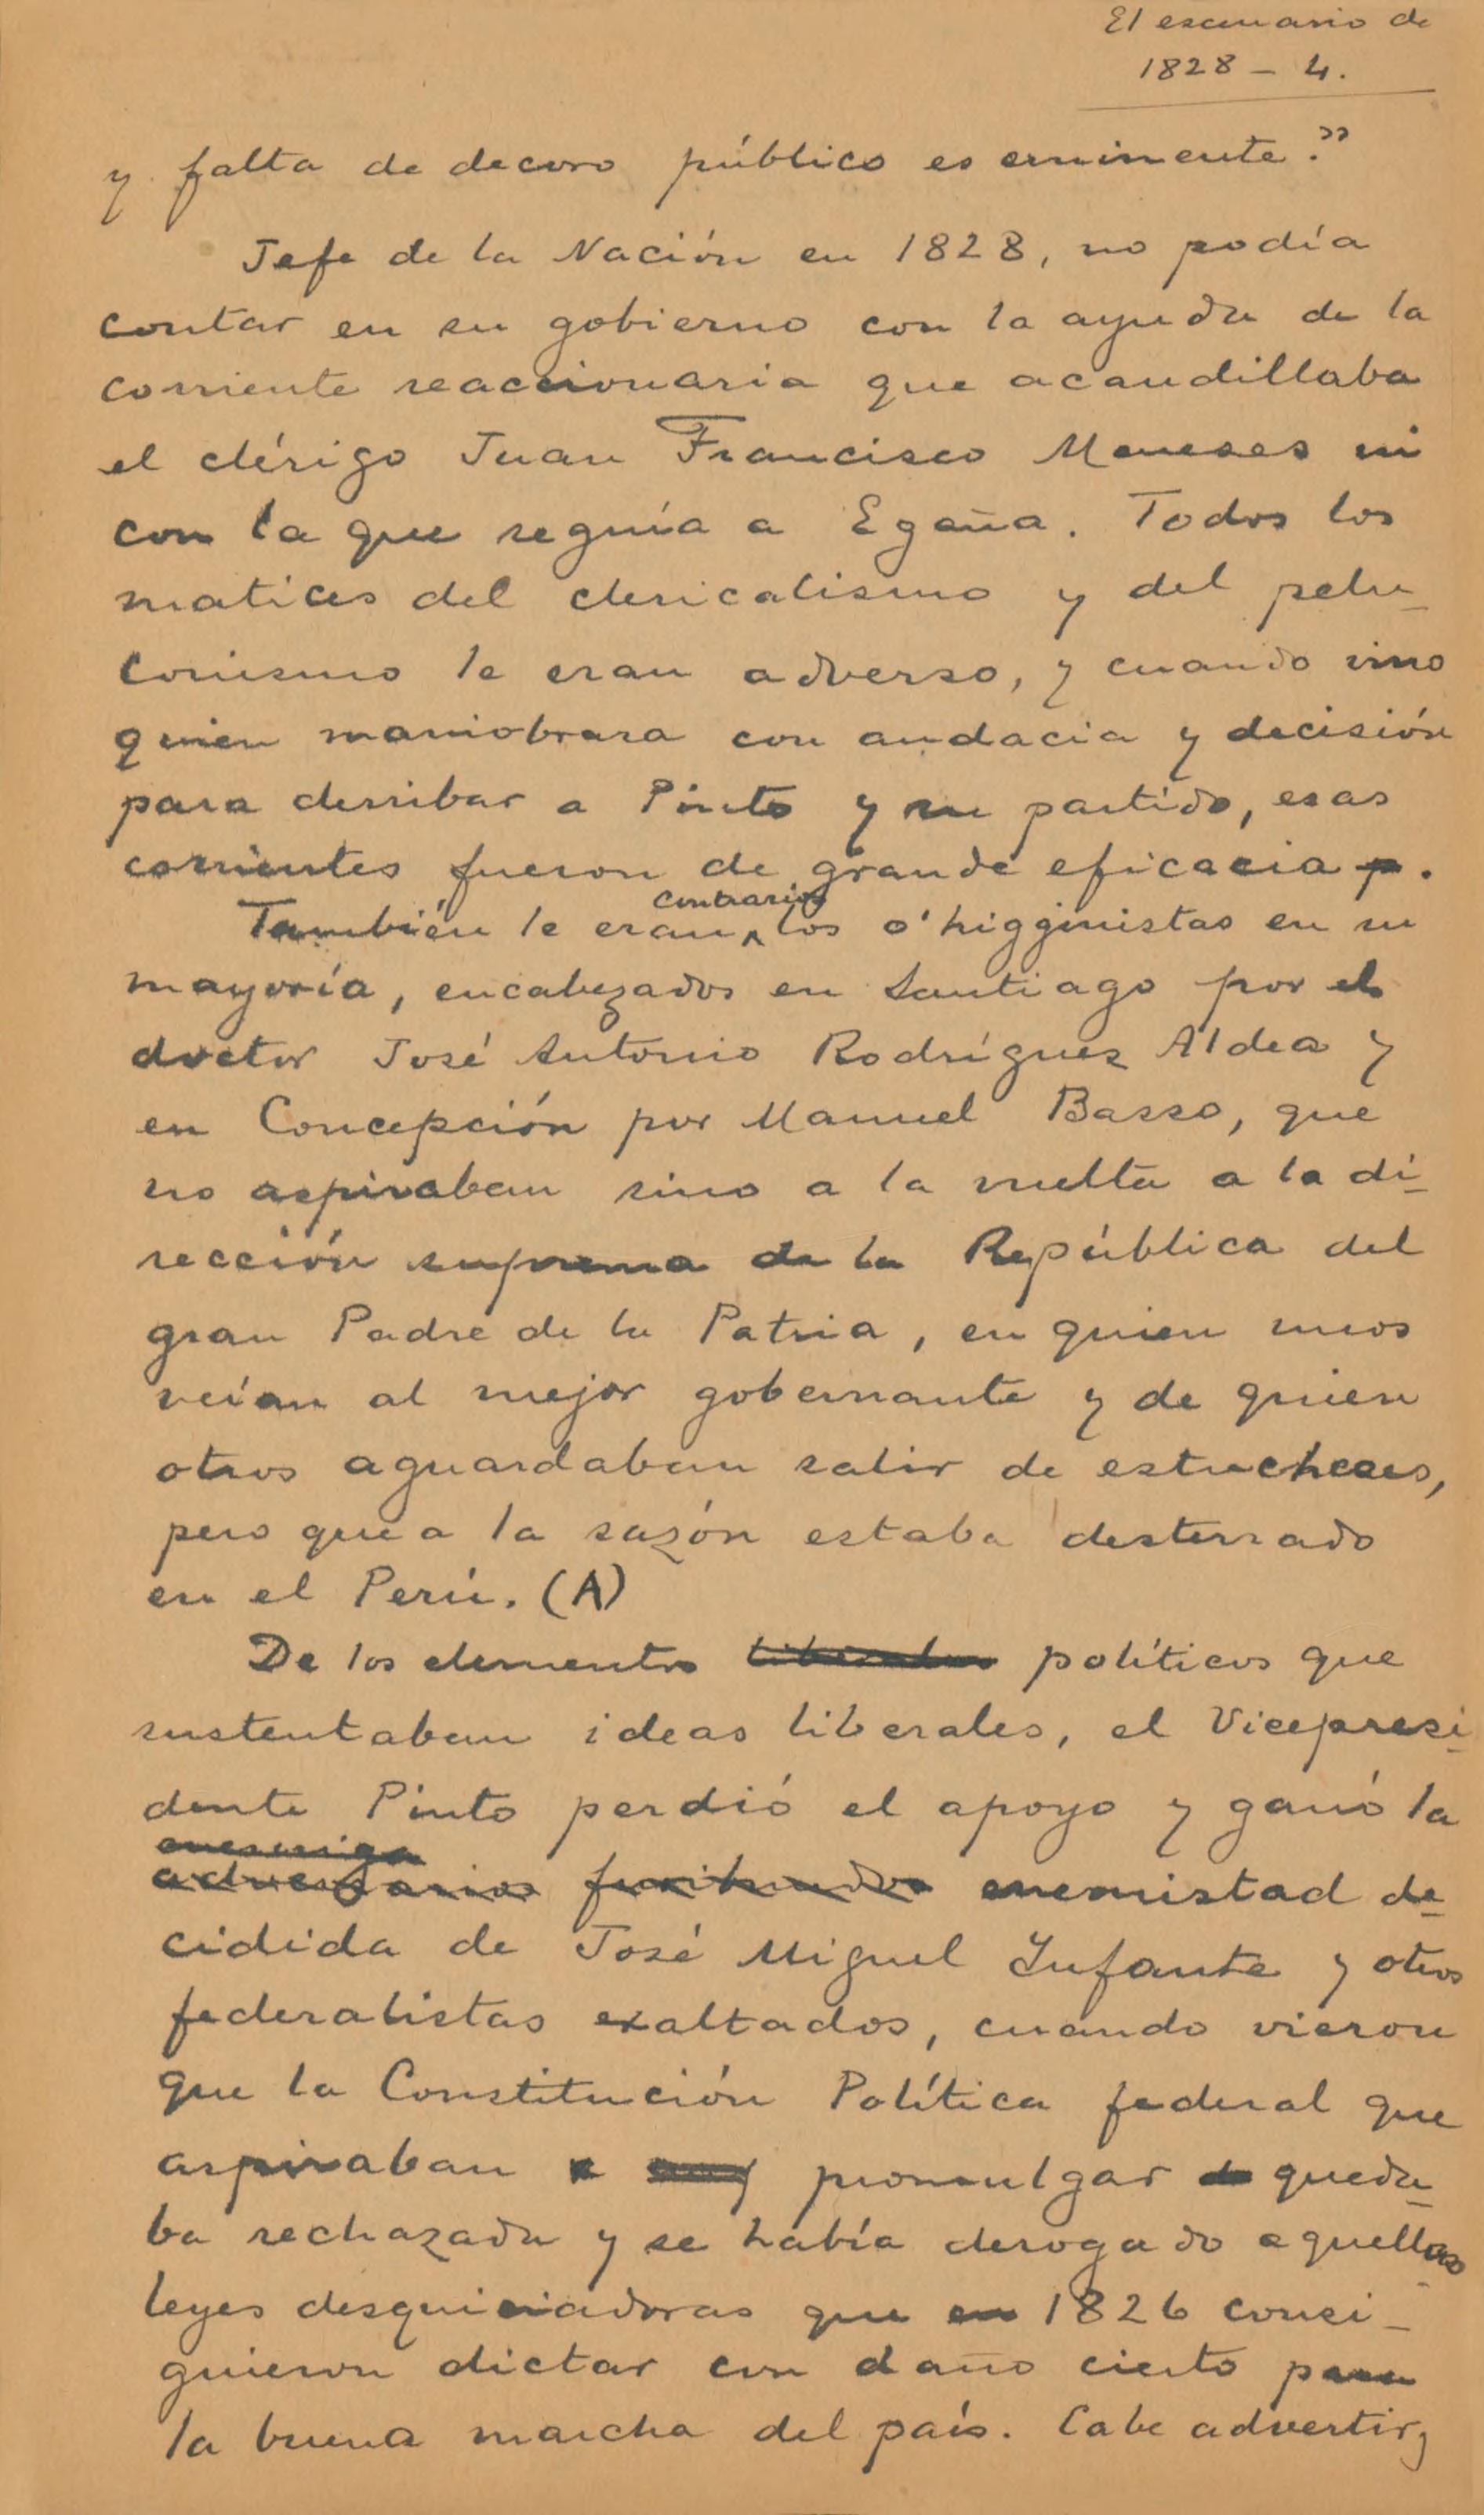 El escenario de
1828 - 4.
y falta de decoro público es eminente."
Jefe de la Nación en 1828, no podía
contar en su gobierno con la ayuda de la
corriente reaccionaria que acaudillaba
el clérigo Juan Francisco Meneses ni
con la que seguía a Egaña. Todos los
matices del clericalismo y del pelu-
conismo le eran adverso, y cuando vino
quien maniobrara con audacia y decisión
para derribar a Pinto y su partido, esas
corrientes fueron de grande eficacia.
contrarios
También le eran los o'higginistas en su
mayoría, encabezados en Santiago por el
doctor José Antonio Rodríguez Aldea y
en Concepción por Manuel Basso, que
no aspiraban sino a la vuelta a la di-
rección suprema de la República del
gran Padre de la Patria, en quien unos
veían al mejor gobernante y de quien
otros aguardaban salir de estrecheces,
pero que a la sazón estaba desterrado
en el Perú. (A)
De los elementos liberales políticos que
sustentaban ideas liberales, el Vicepresi-
dente Pinto perdió el apoyo y ganó la
enemiga
adversarios furibundos enemistad de-
cidida de José Miguel Infante y otros
federalistas exaltados, cuando vieron
que la Constitución Política federal que
aspiraban a promulgar queda-
ba rechazada y se había derogado aquellas
leyes desquiciadoras que en 1826 consi-
guieron dictar con daño cierto para
la buena marcha del país. Cabe advertir,